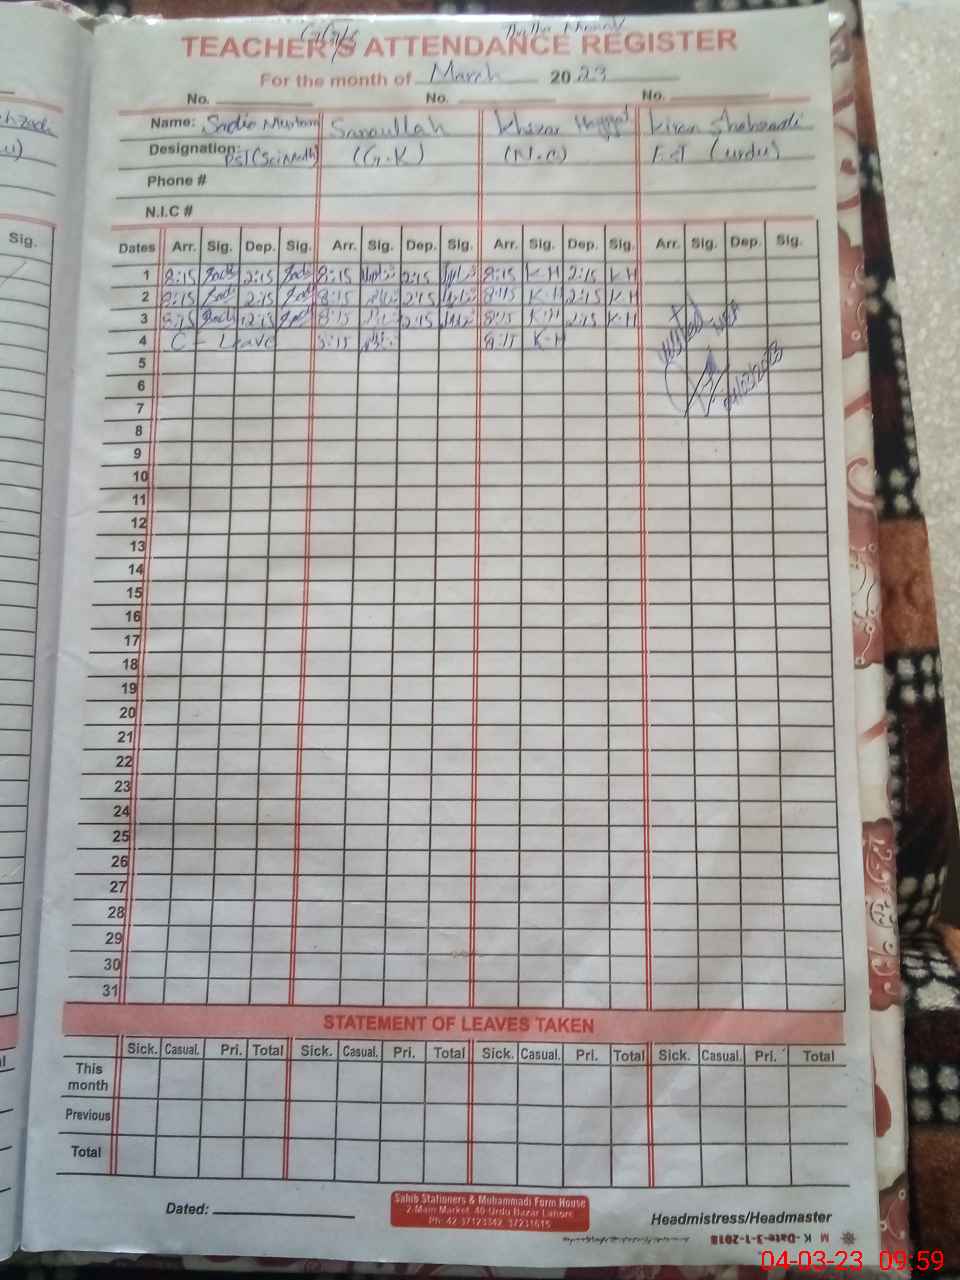 TEACHER'S ATTENDANCE REGISTER
For the month of March 2023
No. No. No.
Name: Sanaullah Kiran Shahzadi
Designation: PST (Sci Math) (G.K) (N.C) EST (urdu)
Phone #
N.I.C #
Dates Arr. Sig. Dep. Sig. Arr. Sig. Dep. Sig. Arr. Sig. Dep. Sig. Arr. Sig. Dep. Sig.
1 8:15 2:15 8:15 2:15 8:15 K-H 2:15 K-H
2 8:15 2:15 8:15 2:15 8:15 K-H 2:15 K-H
3 8:15 2:15 8:15 2:15 8:15 K-H 2:15 K-H
4 C - Leave 8:15 8:15 K-H
visited MEA
04/03/2023
5
6
7
8
9
10
11
12
13
14
15
16
17
18
19
20
21
22
23
24
25
26
27
28
29
30
31
STATEMENT OF LEAVES TAKEN
Sick. Casual. Pri. Total Sick. Casual. Pri. Total Sick. Casual. Pri. Total Sick. Casual. Pri. Total
This month
Previous
Total
Dated:
Sahib Stationers & Muhammadi Form House
2-Main Market, 40-Urdu Bazar Lahore
Ph: 42-37123342, 37231615
Headmistress/Headmaster
M K - Date-3-1-2018
04-03-23 09:59
Sig.